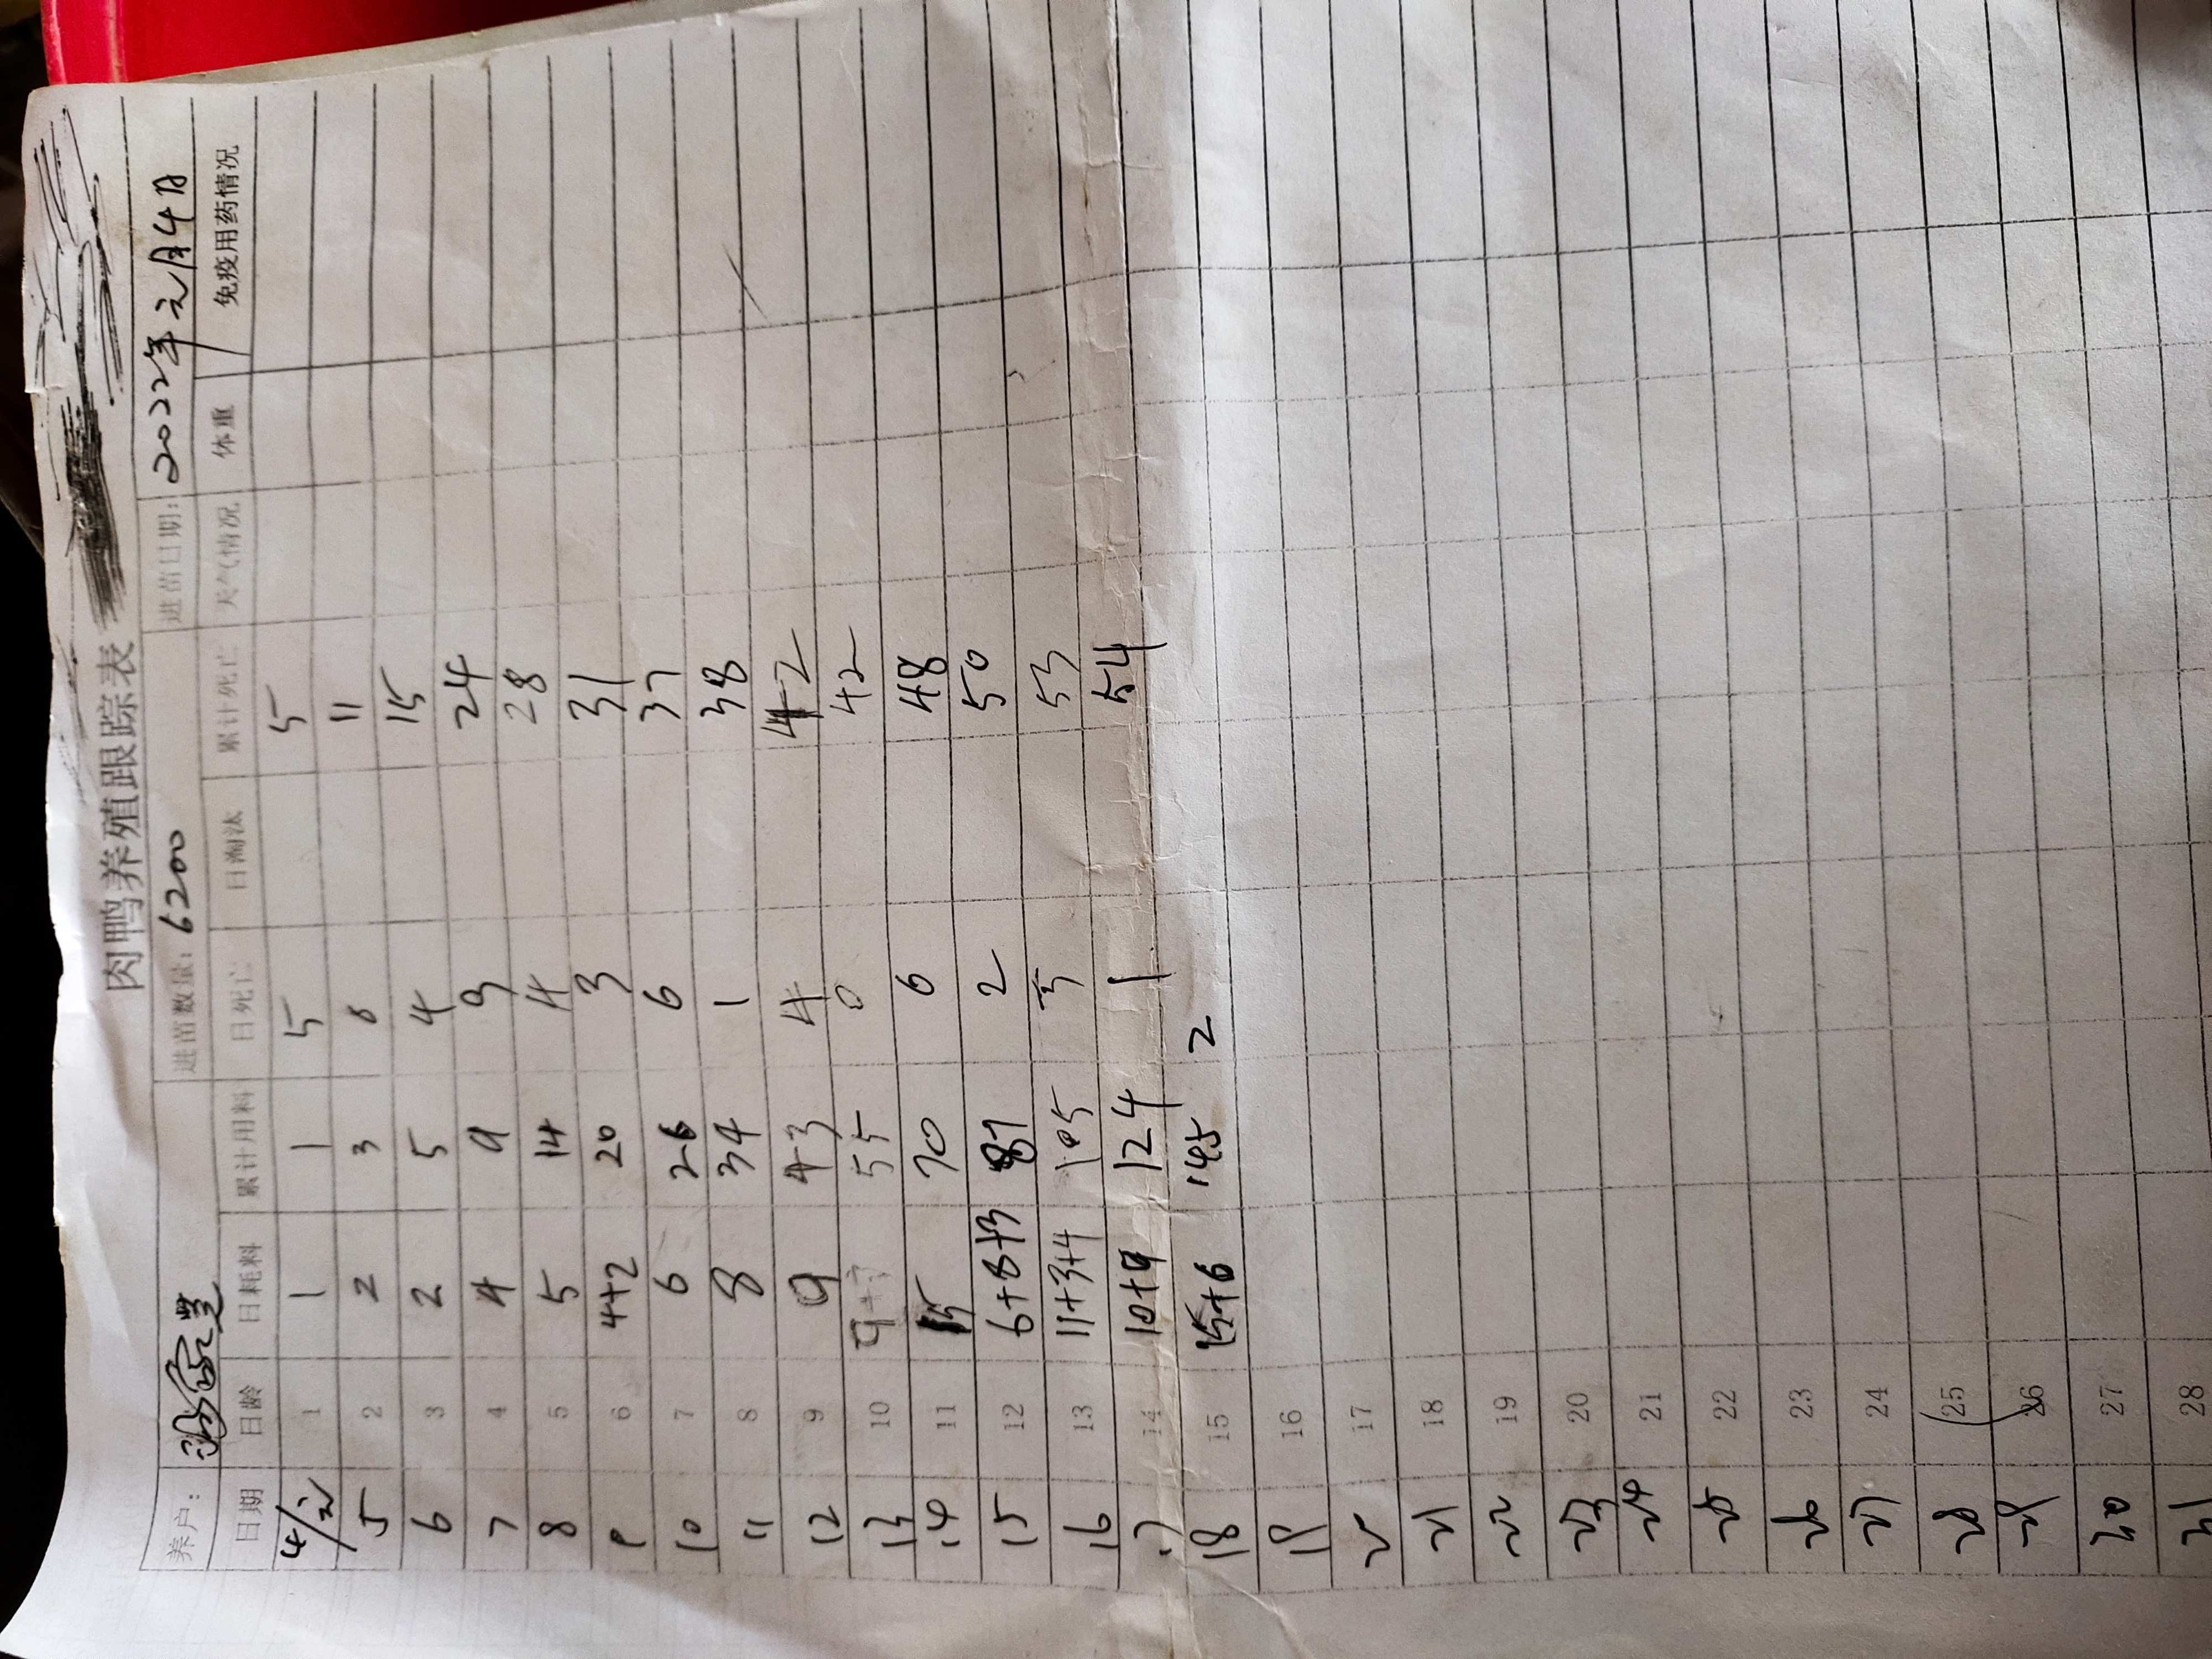 肉鸭养殖跟踪表
养户: 进苗数量: 6200 进苗日期: 2022年元月4日
日期 日龄 日耗料 累计用料 日死亡 日淘汰 累计死亡 天气情况 体重 免疫用药情况
4/元 1 1 1 5 5
5 2 2 3 6 11
6 3 2 5 4 15
7 4 4 9 9 24
8 5 5 14 4 28
9 6 4+2 20 3 31
10 7 6 26 6 37
11 8 8 34 1 38
12 9 9 43 4 42
13 10 9+3 55 0 42
14 11 15 70 6 48
15 12 6+8+3 87 2 50
16 13 11+3+4 105 3 53
17 14 10+9 124 1 54
18 15 15+6 145 2
19 16
20 17
21 18
22 19
23 20
24 21
25 22
26 23
27 24
28 25
29 26
30 27
31 28